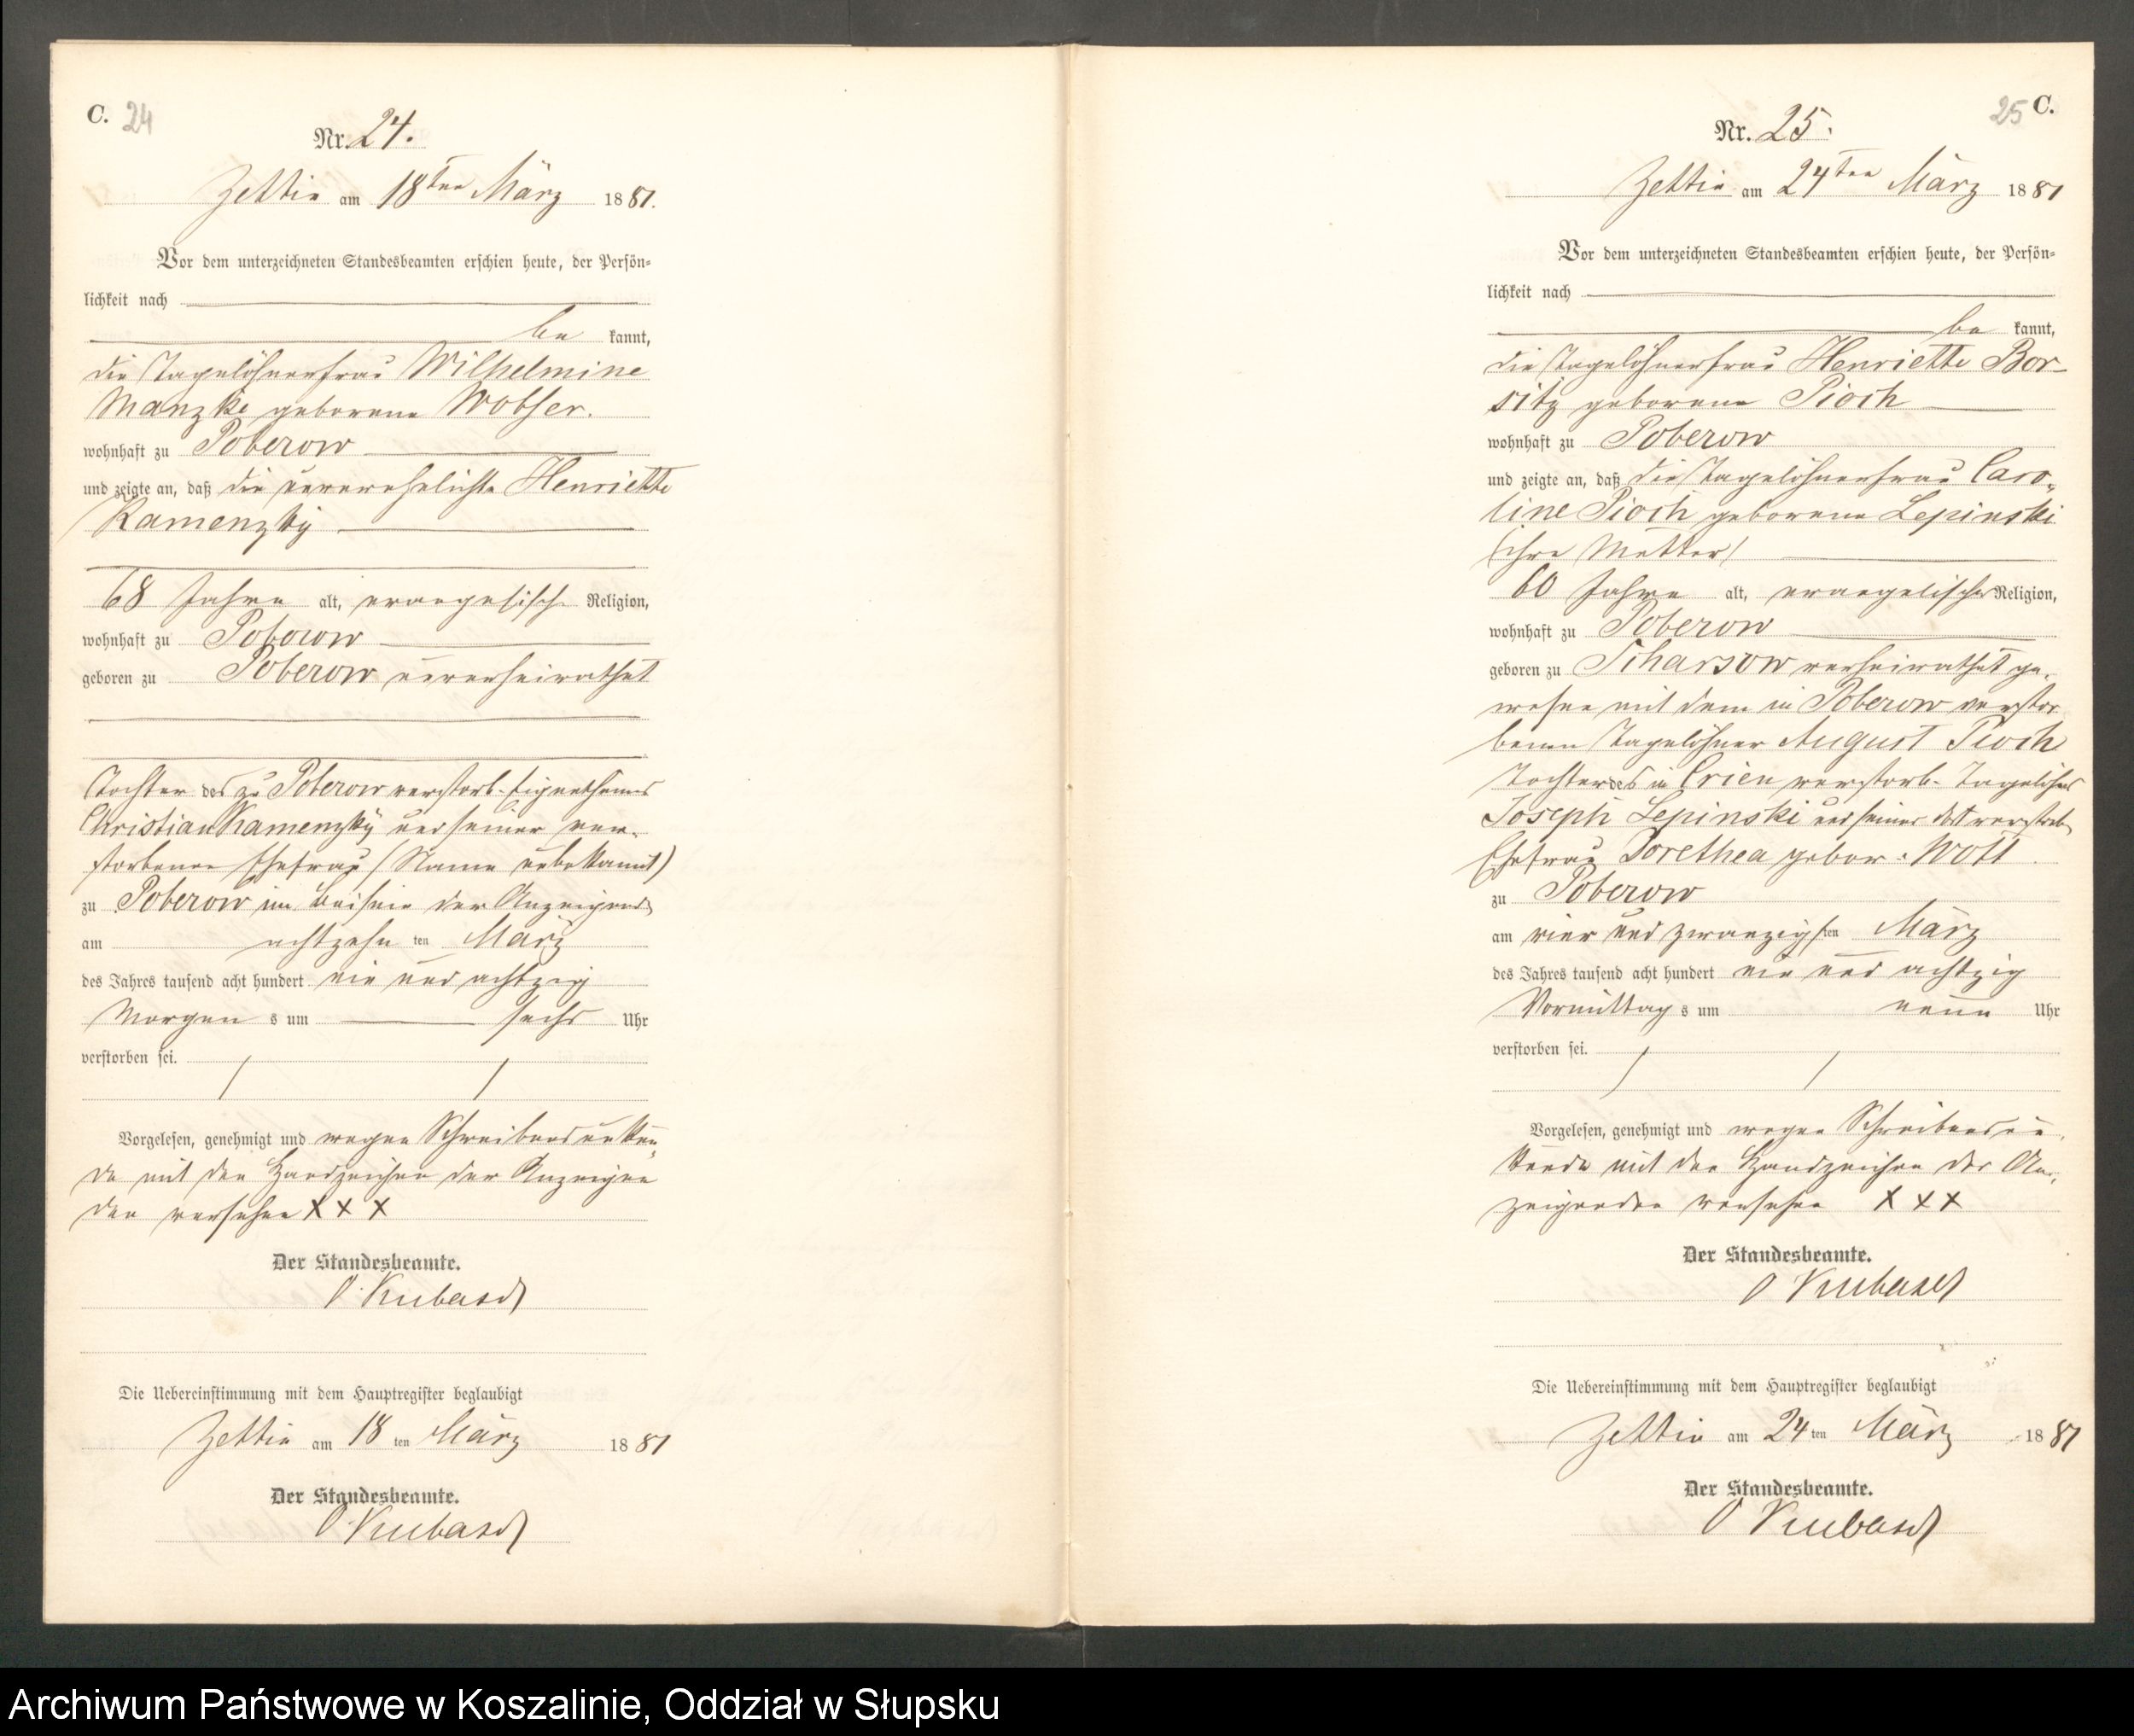 C. 24
Nr. 24.
Zettin am 18ten März 1881.
Vor dem unterzeichneten Standesbeamten erschien heute, der Persön-
lichkeit nach
be kannt,
die Tagelöhnerfrau Wilhelmine
Manzke geborene Wobser.
wohnhaft zu Poberow
und zeigte an, daß die unverehelichte Henriette
Kamenzky
68 Jahre alt, evangelische Religion,
wohnhaft zu Poberow
geboren zu Poberow unverheirathet
Tochter des zu Poberow verstorb. Eigenthümers
Christian Kamenzky und seiner ver-
storbenen Ehefrau (Name unbekannt)
zu Poberow im Beisein der Anzeigend
am achtzehn ten März
des Jahres tausend acht hundert ein und achtzig
Morgen s um sechs Uhr
verstorben sei.
Vorgelesen, genehmigt und wegen Schreibensunkun-
de mit den Handzeichen der Anzeigen
den versehen X X X
Der Standesbeamte.
O. Kubasch
Die Uebereinstimmung mit dem Hauptregister beglaubigt
Zettin am 18 ten März 1881
Der Standesbeamte.
O Kubasch
25 C.
Nr. 25.
Zettin am 24ten März 1881
Vor dem unterzeichneten Standesbeamten erschien heute, der Persön-
lichkeit nach
be kannt,
die Tagelöhnerfrau Henriette Bor-
sitz geborene Pioch
wohnhaft zu Poberow
und zeigte an, daß die Tagelöhnerfrau Caro-
line Pioch geborene Lepinski
(ihre Mutter)
60 Jahre alt, evangelischer Religion,
wohnhaft zu Poberow
geboren zu Scharsow verheirathet ge-
wesen mit dem in Poberow verstor
benen Tagelöhner August Pioch
Tochter des in Crien verstorb. Tagelöhners
Joseph Lepinski und seiner dort verstorb.
Ehefrau Dorethea gebor. Wott
zu Poberow
am vier und zwanzigsten März
des Jahres tausend acht hundert ein und achtzig
Vormittag s um neun Uhr
verstorben sei.
Vorgelesen, genehmigt und wegen Schreibensun-
kunde mit den Handzeichen der An-
zeigenden versehen X X X
Der Standesbeamte.
O Kubasch
Die Uebereinstimmung mit dem Hauptregister beglaubigt
Zettin am 24 ten März 1881
Der Standesbeamte.
O Kubasch
Archiwum Państwowe w Koszalinie, Oddział w Słupsku